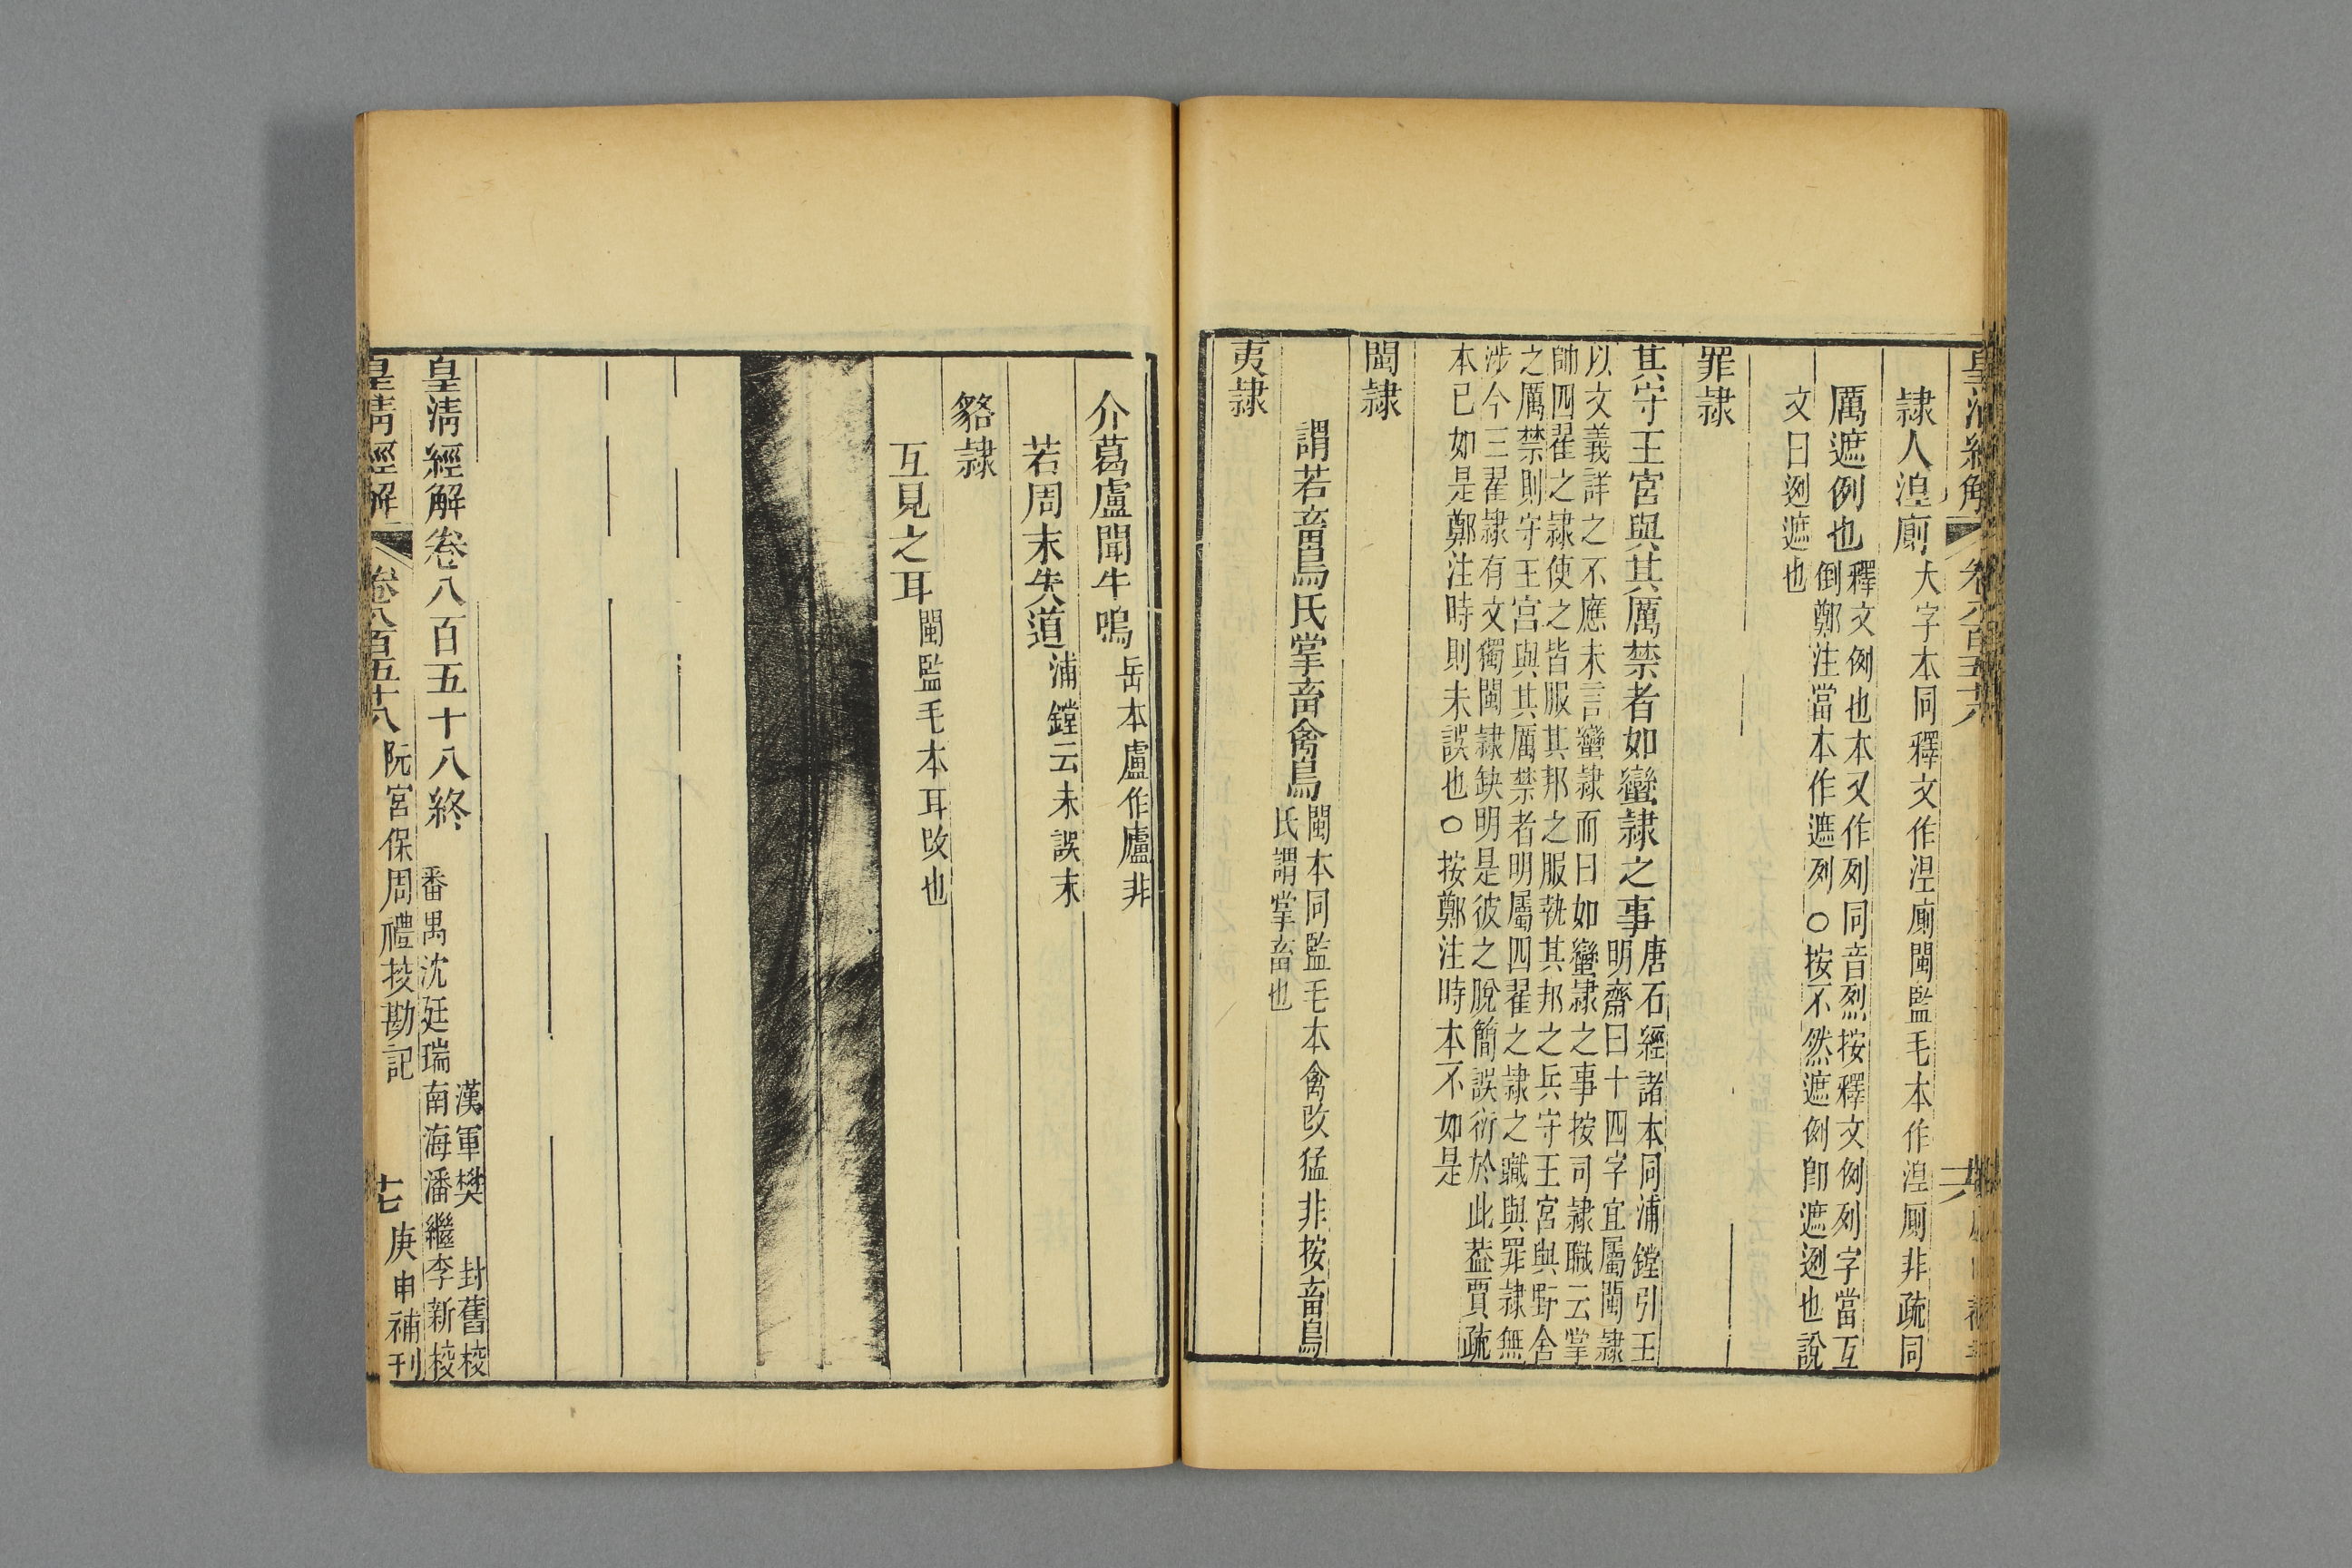 皇清經解 卷八百五十八
隸人涅廁 大字本同釋文作涅廁閩監毛本作湼厠非疏同
厲遮例也 釋文例也本又作列同音烈按釋文例列字當互
倒鄭注當本作遮列○按不然遮例卽遮迾也說
文曰迾遮也
罪隸
其守王宮與其厲禁者如蠻隸之事 唐石經諸本同浦鏜引王
明齋曰十四字宜屬閩隸
以文義詳之不應未言蠻隸而曰如蠻隸之事按司隸職云掌
帥四翟之隸使之皆服其邦之服執其邦之兵守王宮與野舍
之厲禁則守王宮與其厲禁者明屬四翟之隸之職與罪隸無
涉今三翟隸有文獨閩隸缺明是彼之脫簡誤衍於此葢賈疏
本已如是鄭注時則未誤也○按鄭注時本不如是
閩隸
謂若畜鳥氏掌畜禽鳥 閩本同監毛本禽改猛非按畜鳥
氏謂掌畜也
夷隸
介葛盧聞牛鳴 岳本盧作廬非
若周末失道 浦鏜云未誤末
貉隸
互見之耳 閩監毛本耳改也
皇清經解卷八百五十八終
漢軍樊封舊校
番禺沈廷瑞南海潘繼李新校
皇清經解 卷八百五十八 阮宮保周禮挍勘記 十七 庚申補刊